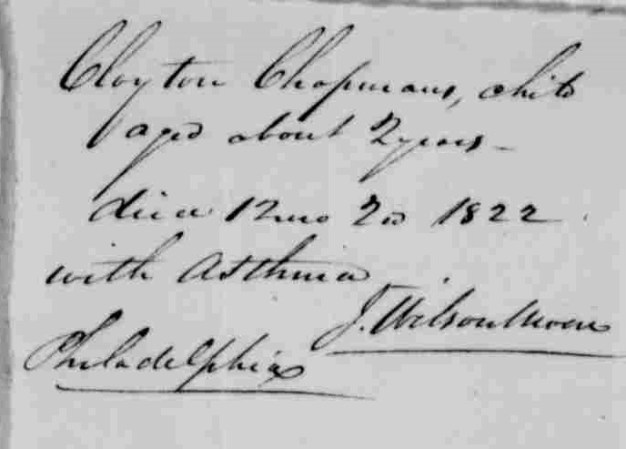 Clayton Chapmans, child
aged about 2 years -
died 12 mo 2d 1822
with Asthma
J. Wilson Moore
Philadelphia